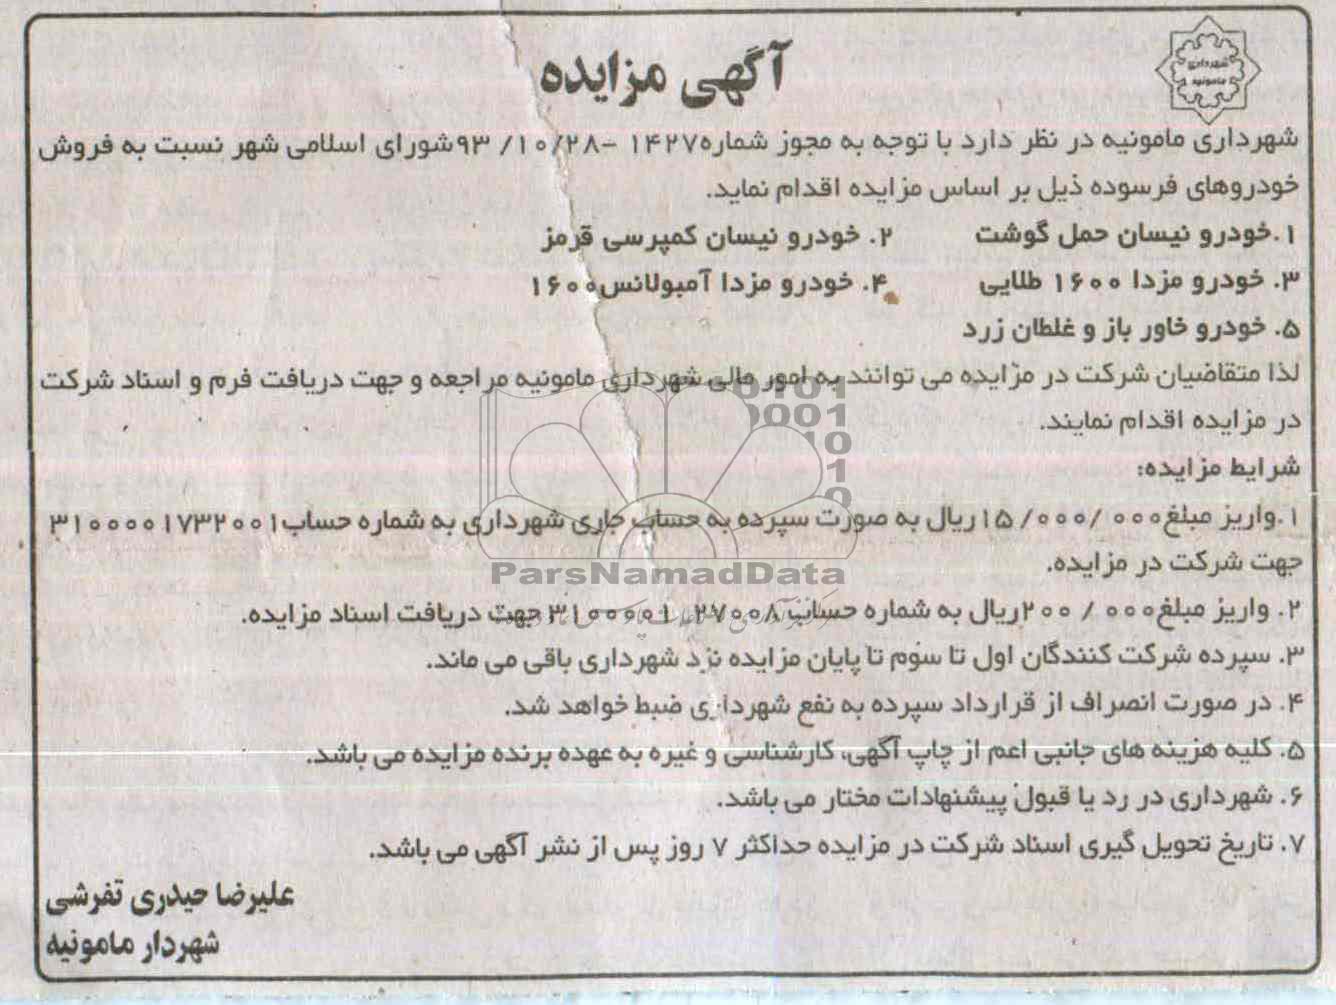 شهرداری مامونیه
آگهی مزایده
شهرداری مامونیه در نظر دارد با توجه به مجوز شماره۱۴۲۷ -۹۳/۱۰/۲۸شورای اسلامی شهر نسبت به فروش
خودروهای فرسوده ذیل بر اساس مزایده اقدام نماید.
۱.خودرو نیسان حمل گوشت ۲. خودرو نیسان کمپرسی قرمز
۳. خودرو مزدا ۱۶۰۰ طلایی ۴. خودرو مزدا آمبولانس۱۶۰۰
۵. خودرو خاور باز و غلطان زرد
لذا متقاضیان شرکت در مزایده می توانند به امور مالی شهرداری مامونیه مراجعه و جهت دریافت فرم و اسناد شرکت
در مزایده اقدام نمایند.
شرایط مزایده:
۱.واریز مبلغ۱۵/۰۰۰/۰۰۰ریال به صورت سپرده به حساب جاری شهرداری به شماره حساب۳۱۰۰۰۰۱۷۳۲۰۰۱
جهت شرکت در مزایده.
ParsNamadData
۲. واریز مبلغ۲۰۰/۰۰۰ریال به شماره حساب جهت دریافت اسناد مزایده.
۳. سپرده شرکت کنندگان اول تا سوم تا پایان مزایده نزد شهرداری باقی می ماند.
۴. در صورت انصراف از قرارداد سپرده به نفع شهرداری ضبط خواهد شد.
۵. کلیه هزینه های جانبی اعم از چاپ آگهی، کارشناسی و غیره به عهده برنده مزایده می باشد.
۶. شهرداری در رد یا قبول پیشنهادات مختار می باشد.
۷. تاریخ تحویل گیری اسناد شرکت در مزایده حداکثر ۷ روز پس از نشر آگهی می باشد.
علیرضا حیدری تفرشی
شهردار مامونیه